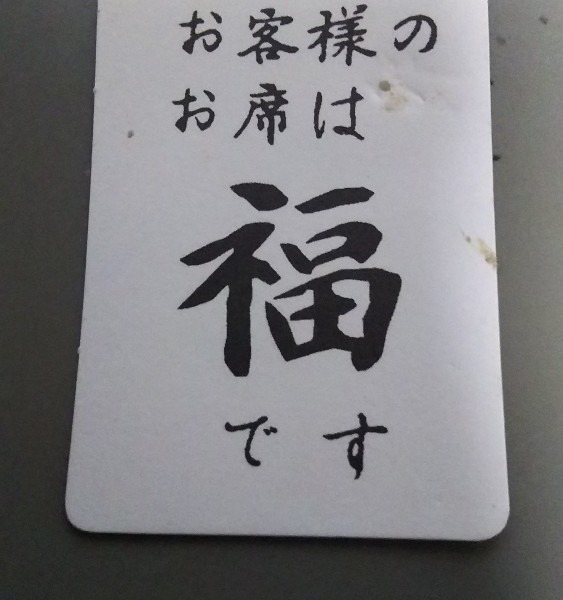 お客様の
お席は
福
です